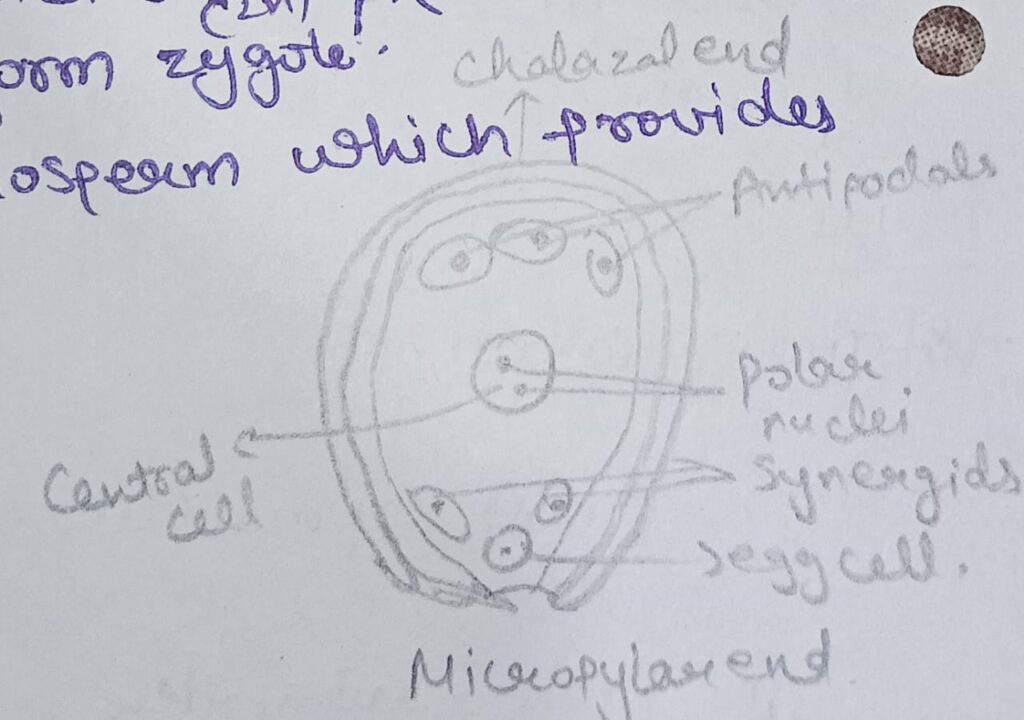 zygote.
Chalazal end
which provides
Antipodals
Polar
nuclei
Central
cell
Synergids
egg cell.
Micropylar end